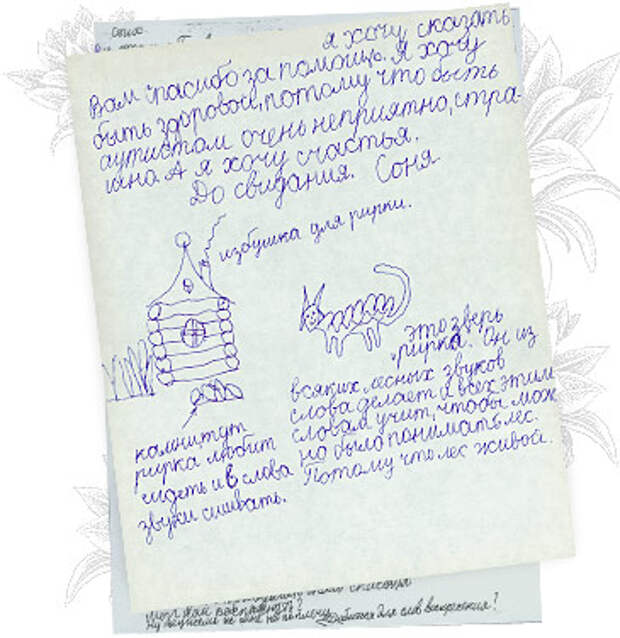 Стих
я хочу сказать
Вам спасибо за помощь. Я хочу
быть здоровой, потому что быть
аутистом очень неприятно, стра-
шно. А я хочу счастья.
До свидания. Соня
избушка для рирки.
это зверь
рирка. Он из
всяких лесных звуков
слова делает и всех этим
словам учит, чтобы мож
но было понимать лес.
Потому что лес живой.
камни тут
рирка любит
сидеть и в слова
звуки сшивать.
для слов воскресения!